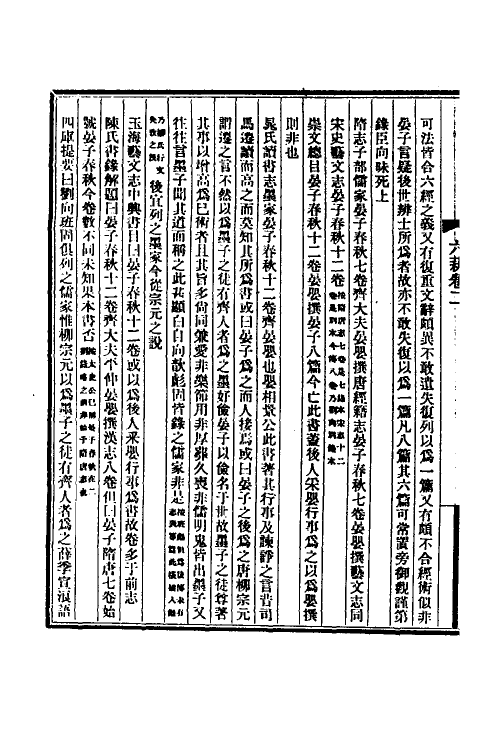 可法皆合六經之義又有復重文辭頗異不敢遺失復列以爲一篇又有頗不合經術似非
晏子言疑後世辨士所爲者故亦不敢失復以爲一篇凡八篇其六篇可常置旁御觀謹第
錄臣向昧死上
隋志子部儒家晏子春秋七卷齊大夫晏嬰撰唐經籍志晏子春秋七卷晏嬰撰藝文志同
宋史藝文志晏子春秋十二卷
崇文總目晏子春秋十二卷晏嬰撰晏子八篇今亡此書蓋後人采嬰行事爲之以爲嬰撰
則非也
晁氏讀書志墨家晏子春秋十二卷齊晏嬰也嬰相景公此書著其行事及諫諍之言昔司
馬遷讀而高之而莫知其所爲書或曰晏子爲之而人接焉或曰晏子之後爲之唐柳宗元
謂遷之言不然以爲墨子之徒有齊人者爲之墨好儉晏子以儉名于世故墨子之徒尊著
其事以增高爲己術者且其旨多尚同兼愛非樂節用非厚葬久喪非儒明鬼皆出墨子又
往往言墨子聞其道而稱之此甚顯白自向歆彪固皆錄之儒家非是
後宜列之墨家今從宗元之說
玉海藝文志中興書目曰晏子春秋十二卷或以爲後人采嬰行事爲書故卷多于前志
陳氏書錄解題曰晏子春秋十二卷齊大夫平仲晏嬰撰漢志八卷但曰晏子隋唐七卷始
號晏子春秋今卷數不同未知果本書否
四庫提要曰劉向班固俱列之儒家惟柳宗元以爲墨子之徒有齊人者爲之薛季宣浪語
六藝卷二